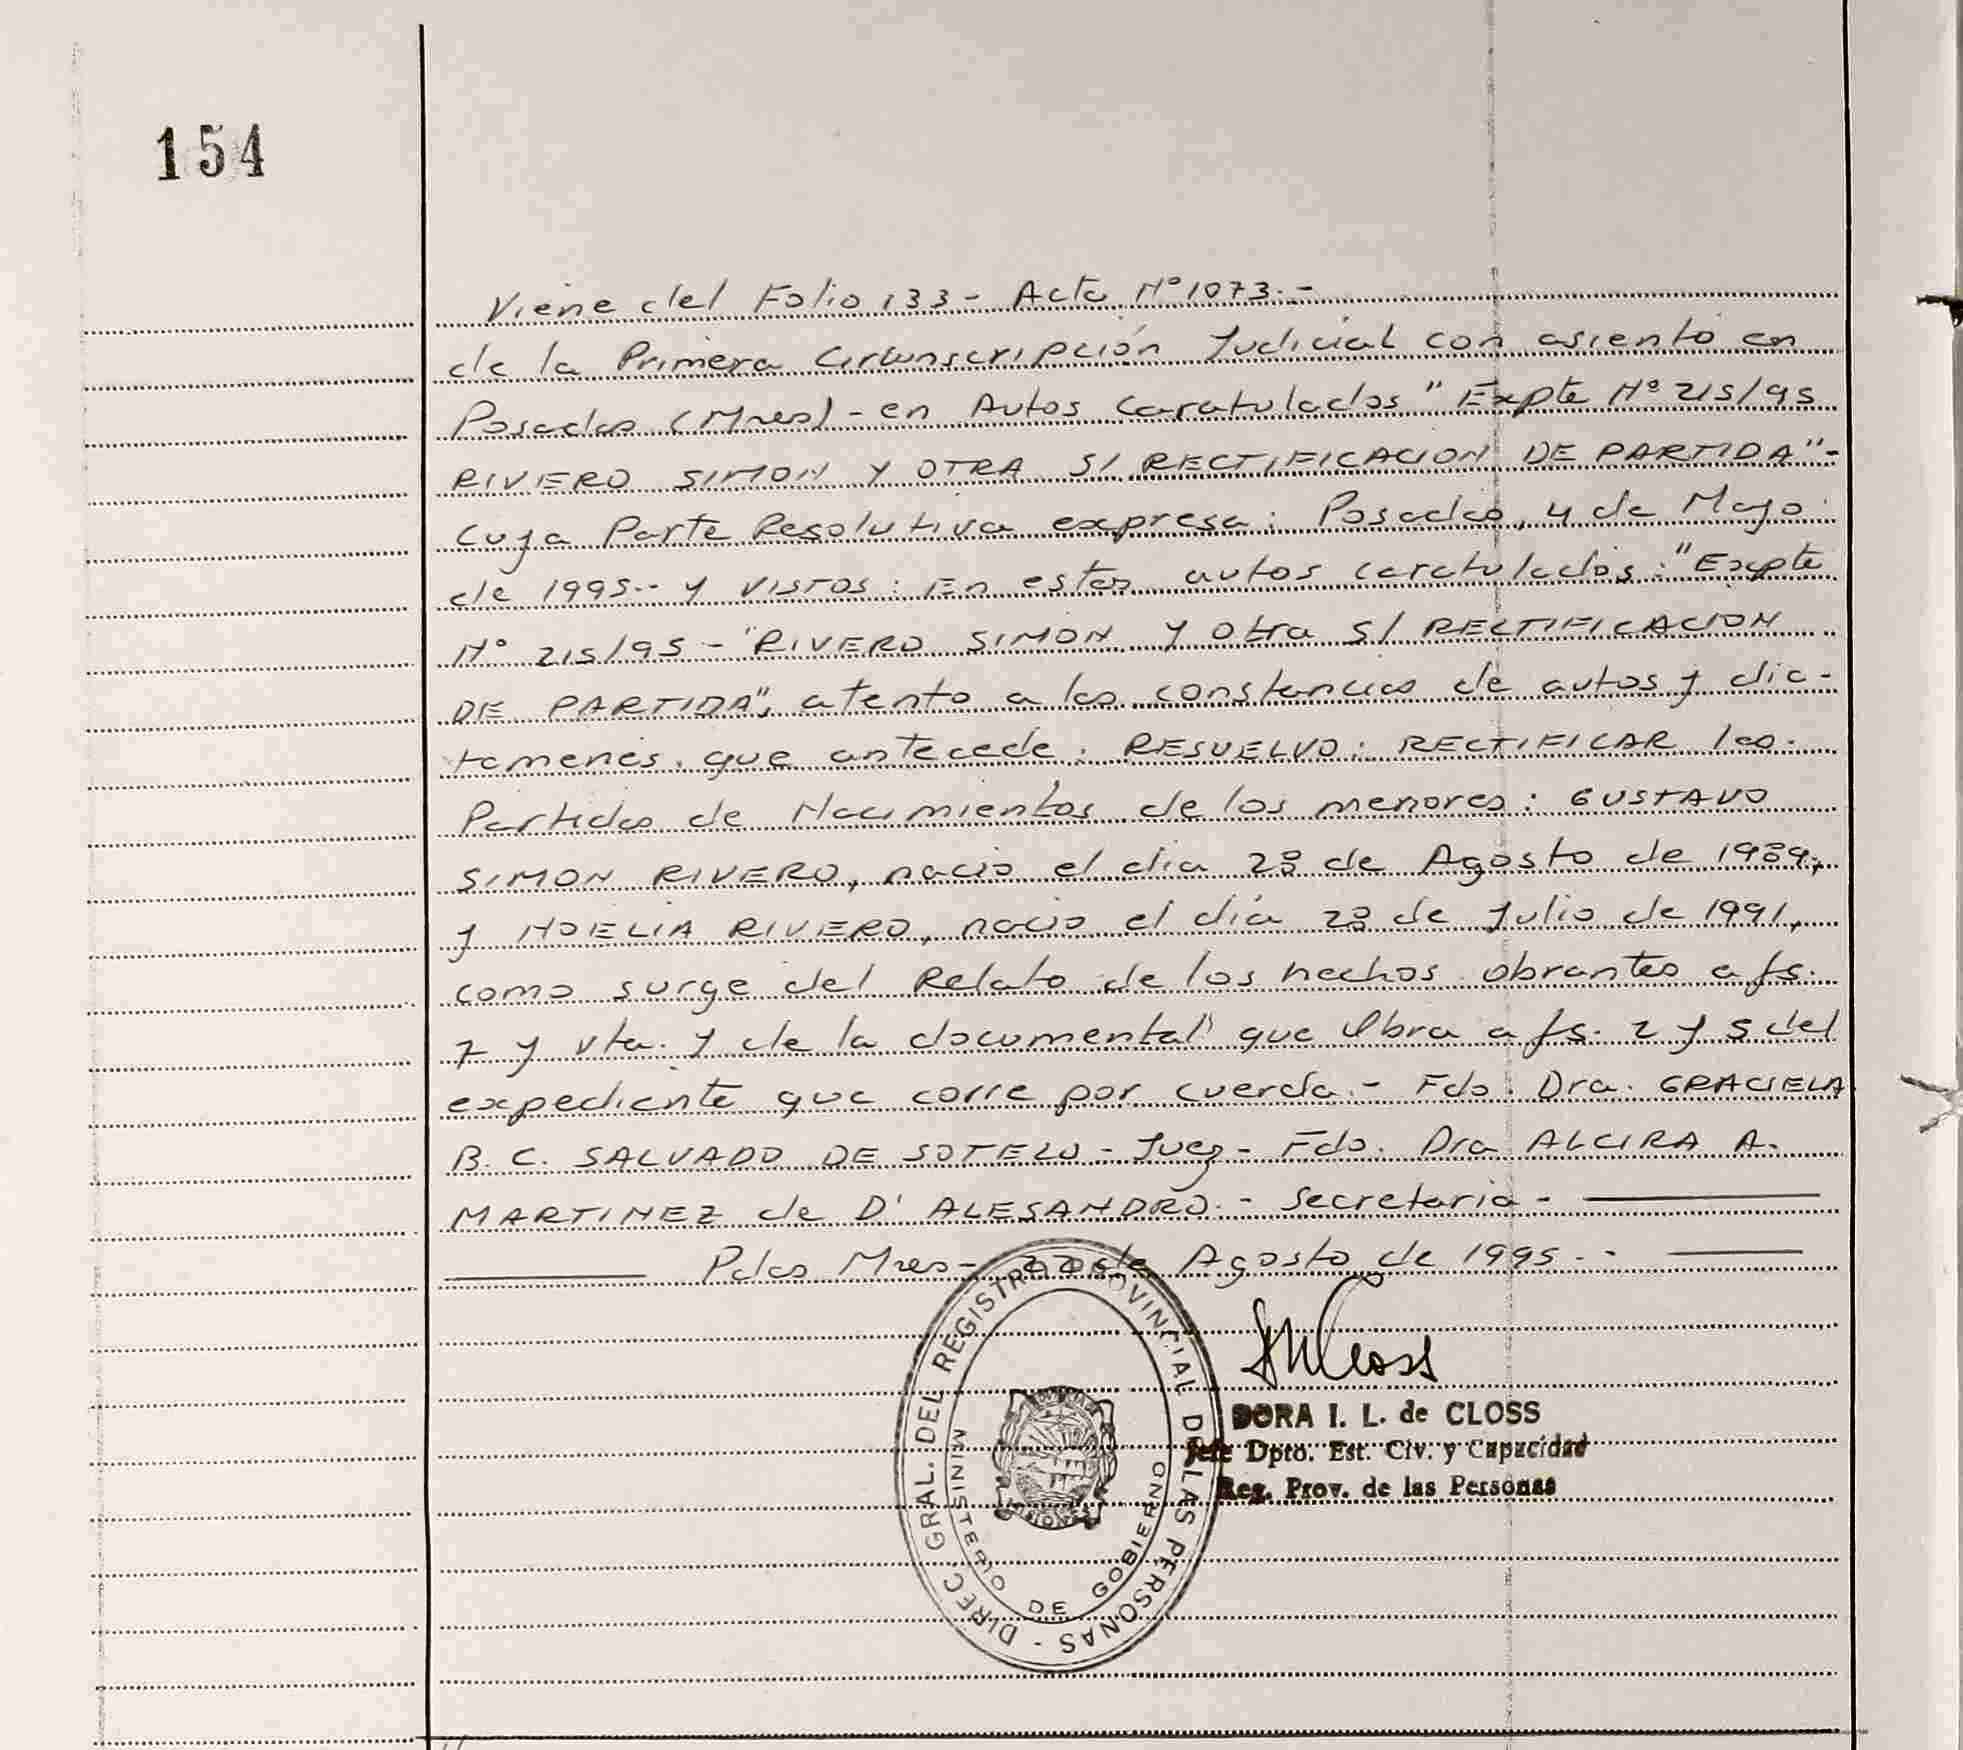 154
Viene del Folio 133- Acta Nº1073.-
de la Primera Circunscripción Judicial con asiento en
Posadas (Mnes)- en Autos Caratulados "Expte Nº 215/95
RIVERO SIMON Y OTRA S/ RECTIFICACION DE PARTIDA"-
Cuya Parte Resolutiva expresa: Posadas, 4 de Mayo
de 1995-- Y VISTOS: En estos autos caratulados: "Expte
Nº 215/95 - "RIVERO SIMON Y Otra S/ RECTIFICACION
DE PARTIDA", atento a las constancias de autos y dic-
tamenes que antecede: RESUELVO: RECTIFICAR las
Partidas de Nacimientos de los menores: GUSTAVO
SIMON RIVERO, nacio el dia 28 de Agosto de 1989,
y NOELIA RIVERO, nacio el día 28 de Julio de 1991,
como surge del Relato de los hechos obrantes a fs.
7 y vta. y de la documental que Obra a fs. 2 y 5 del
expediente que corre por cuerda.- Fdo. Dra. GRACIELA
B. C. SALVADO DE SOTELO - Juez - Fdo. Dra ALCIRA A.
MARTINEZ de D' ALESANDRO.- Secretaria -
Pdas Mnes- 22 de Agosto de 1995.-
DIREC. GRAL. DEL REGISTRO PROVINCIAL DE LAS PERSONAS -
MINISTERIO DE GOBIERNO
DORA I. L. de CLOSS
Jefe Dpto. Est. Civ. y Capacidad
Reg. Prov. de las Personas